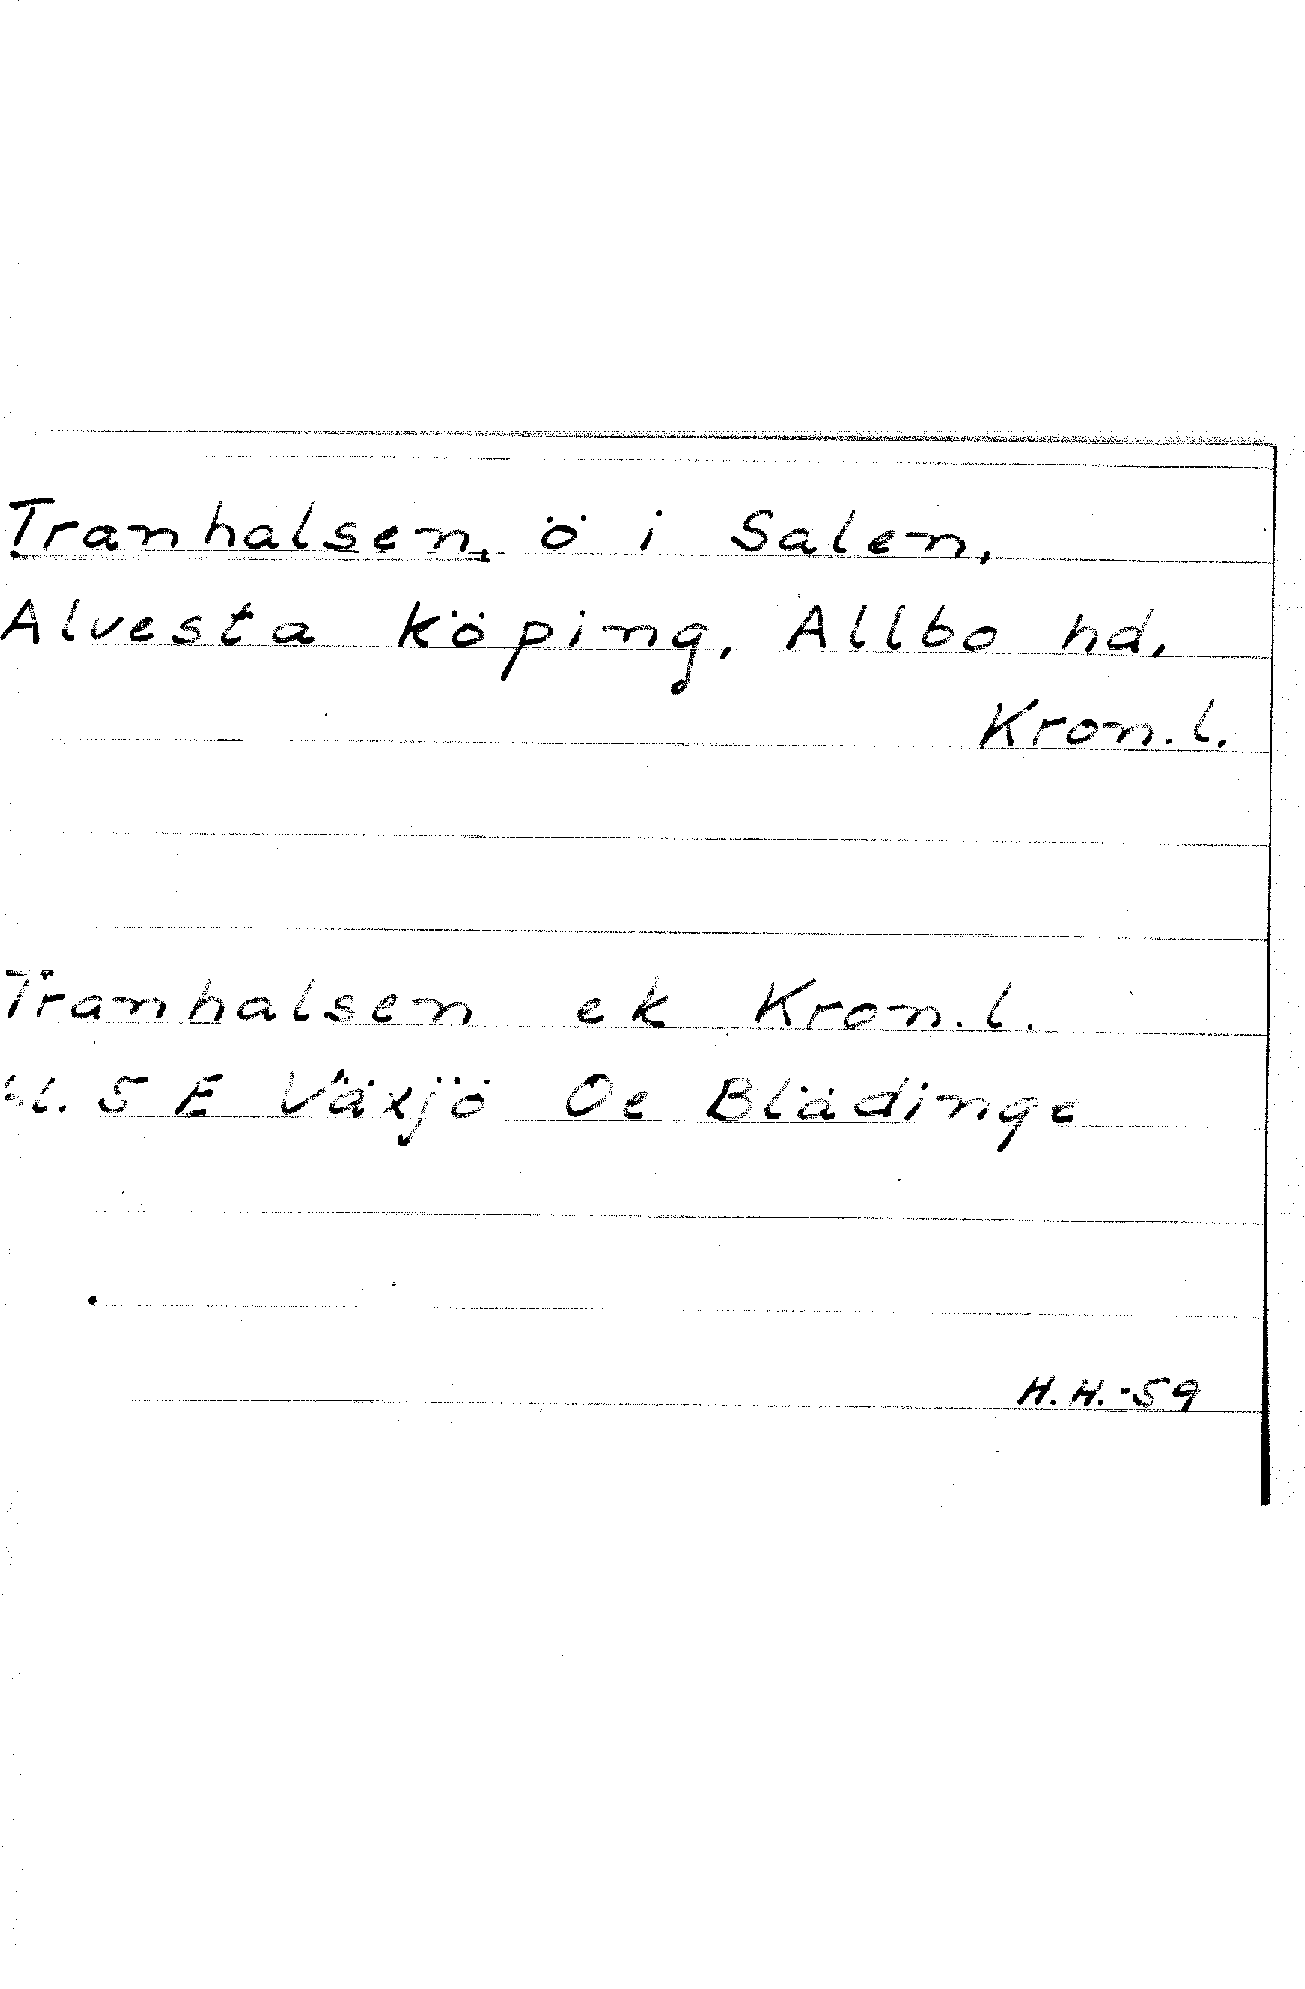 Tranhalsen, ö i Salen,
Alvesta köping, Allbo hd,
Kron. l.
Tranhalsen ek Kron. l.
bl. 5 E Växjö Oe Blädinge
H. H. -59